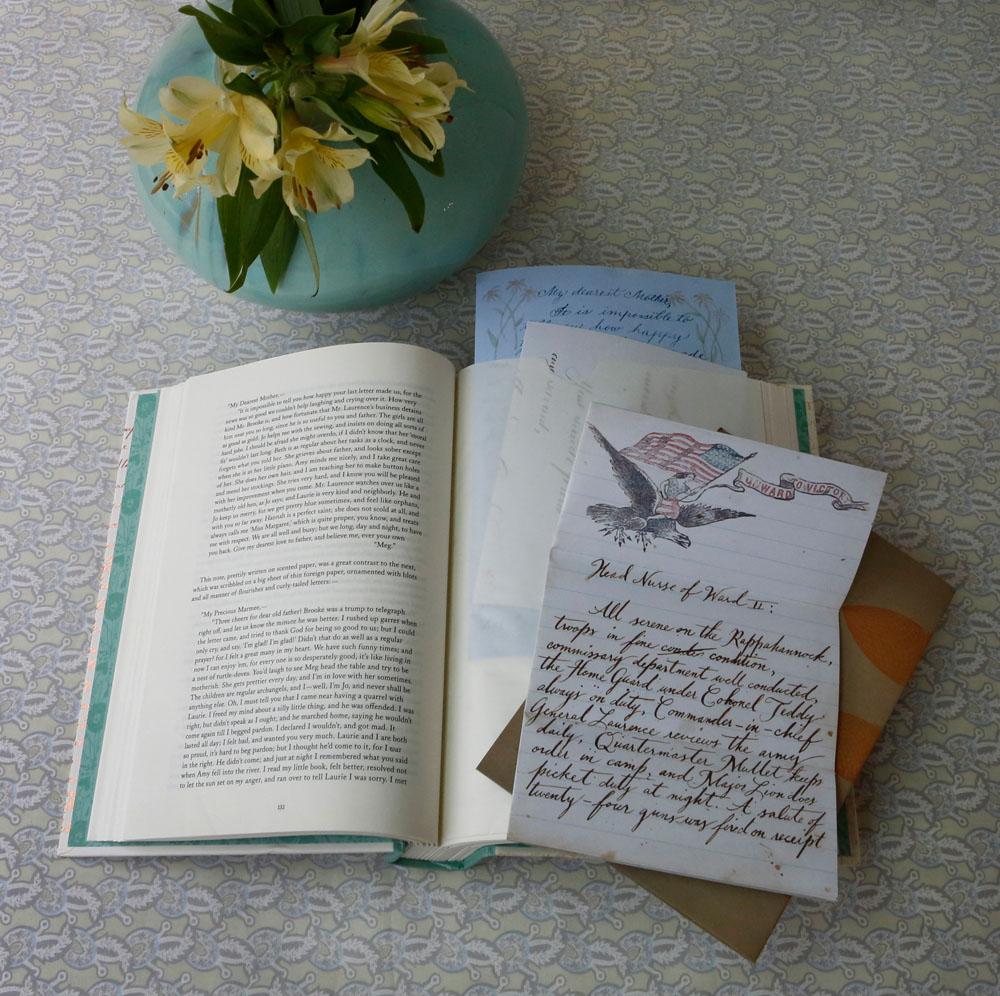 "My Dearest Mother,—
"It is impossible to tell you how happy your last letter made us, for the
news was so good we couldn't help laughing and crying over it. How very
kind Mr. Brooke is, and how fortunate that Mr. Laurence's business detains
him near you so long, since he is so useful to you and father. The girls are all
as good as gold. Jo helps me with the sewing, and insists on doing all sorts of
hard jobs. I should be afraid she might overdo, if I didn't know that her 'moral
fit' wouldn't last long. Beth is as regular about her tasks as a clock, and never
forgets what you told her. She grieves about father, and looks sober except
when she is at her little piano. Amy minds me nicely, and I take great care
of her. She does her own hair, and I am teaching her to make button holes
and mend her stockings. She tries very hard, and I know you will be pleased
with her improvement when you come. Mr. Laurence watches over us like a
motherly old hen, as Jo says; and Laurie is very kind and neighborly. He and
Jo keep us merry, for we get pretty blue sometimes, and feel like orphans,
with you so far away. Hannah is a perfect saint; she does not scold at all, and
always calls me 'Miss Margaret,' which is quite proper, you know, and treats
me with respect. We are all well and busy; but we long, day and night, to have
you back. Give my dearest love to father, and believe me, ever your own
"Meg."
This note, prettily written on scented paper, was a great contrast to the next,
which was scribbled on a big sheet of thin foreign paper, ornamented with blots
and all manner of flourishes and curly-tailed letters:—
"My Precious Marmee,—
"Three cheers for dear old father! Brooke was a trump to telegraph
right off, and let us know the minute he was better. I rushed up garret when
the letter came, and tried to thank God for being so good to us; but I could
only cry, and say, 'I'm glad! I'm glad!' Didn't that do as well as a regular
prayer? for I felt a great many in my heart. We have such funny times; and
now I can enjoy 'em, for every one is so desperately good, it's like living in
a nest of turtle-doves. You'd laugh to see Meg head the table and try to be
motherish. She gets prettier every day, and I'm in love with her sometimes.
The children are regular archangels, and I—well, I'm Jo, and never shall be
anything else. Oh, I must tell you that I came near having a quarrel with
Laurie. I freed my mind about a silly little thing, and he was offended. I was
right, but didn't speak as I ought; and he marched home, saying he wouldn't
come again till I begged pardon. I declared I wouldn't, and got mad. It
lasted all day; I felt bad, and wanted you very much. Laurie and I are both
so proud, it's hard to beg pardon; but I thought he'd come to it, for I was
in the right. He didn't come; and just at night I remembered what you said
when Amy fell into the river. I read my little book, felt better, resolved not
to let the sun set on my anger, and ran over to tell Laurie I was sorry. I met
132
My dearest Mother,
It is impossible to
how happy
ONWARD TO VICTORY
Head Nurse of Ward II:
All serene on the Rappahannock,
troops in fine condition,
commissary department well conducted,
the Home Guard under Colonel Teddy
always on duty, Commander-in-chief
General Laurence reviews the army
daily, Quartermaster Mullet keeps
order in camp, and Major Lion does
picket duty at night. A salute of
twenty-four guns was fired on receipt